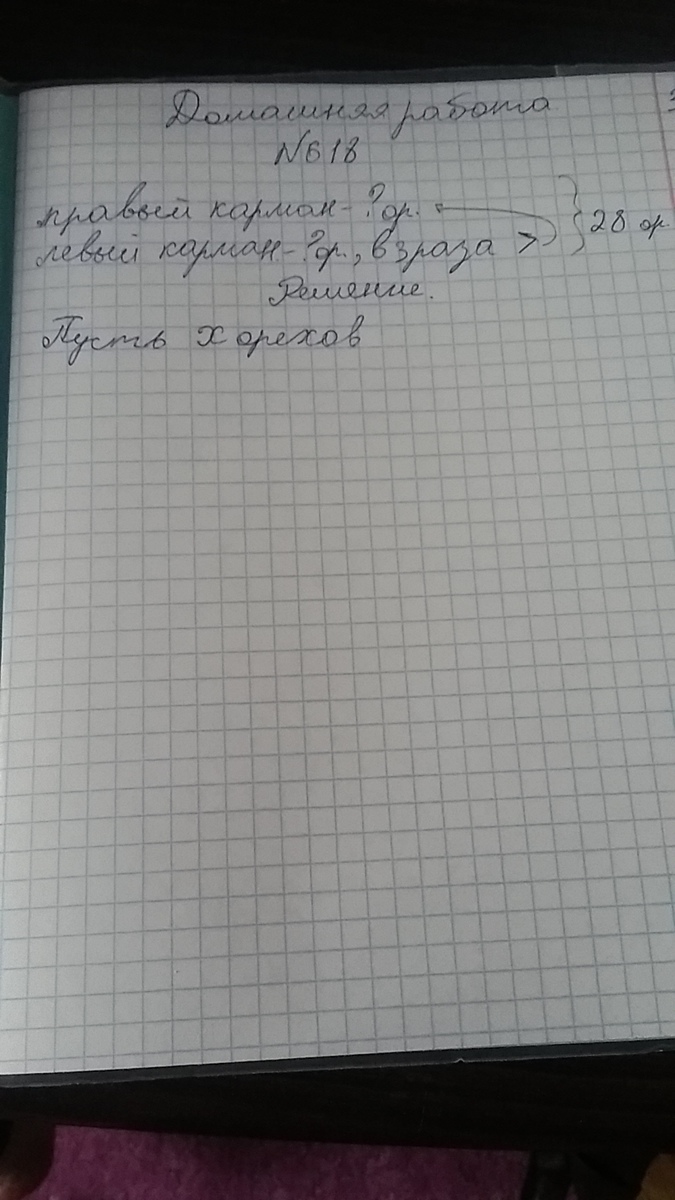 Домашняя работа
№618
правый карман-?ор.
левый карман-?ор., в 3раза > } 28 ор
Решение.
Пусть х орехов